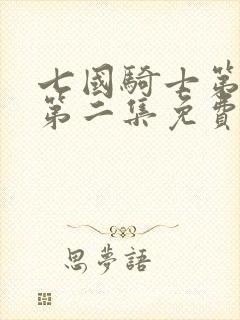 七國騎士第
第二集免費
思夢語